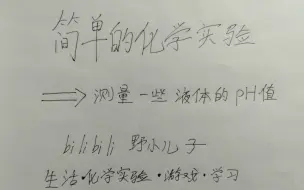 简单的化学实验
⟹ 测量一些液体的pH值
bilibili 野小儿子
生活·化学实验·游戏·学习